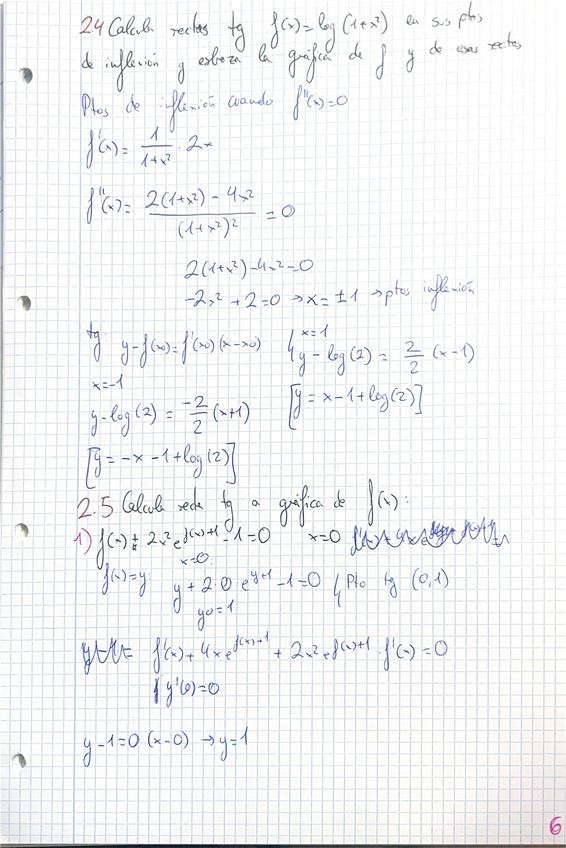 2.4 Calcula rectas tg f(x)=log(1+x²) en sus ptos
de inflexión y esboza la gráfica de f y de esas rectas
Ptos de inflexión cuando f''(x)=0
f'(x)= 1/(1+x²) · 2x
f''(x)= (2(1+x²) - 4x²)/(1+x²)² = 0
2(1+x²)-4x²=0
-2x²+2=0 → x=±1 → ptos inflexión
tg y-f(x0)=f'(x0)(x-x0)
x=-1
y-log(2) = -2/2 (x+1)
[y=-x-1+log(2)]
x=1
↳ y-log(2) = 2/2 (x-1)
[y=x-1+log(2)]
2.5 Calcula recta tg a gráfica de f(x):
1) f(x)+2x²e^(f(x)+1)-1=0 x=0
x=0:
f(x)=y y+2·0 e^(y+1)-1=0 ↳ Pto tg (0,1)
y0=1
f'(x)+4xe^(f(x)+1)+2x²e^(f(x)+1)·f'(x)=0
y'(0)=0
y-1=0(x-0) → y=1
6